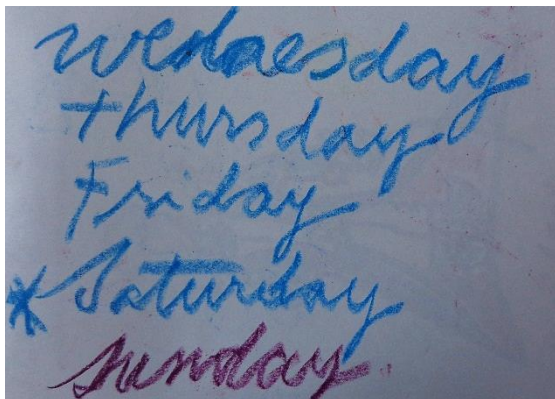 wednesday
thursday
Friday
* Saturday
sunday.